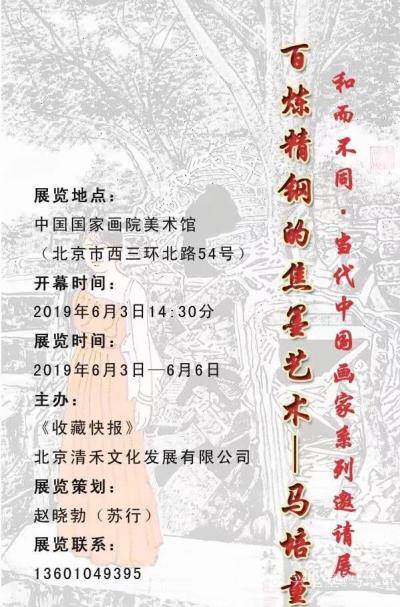 和而不同·当代中国画家系列邀请展
百炼精钢的焦墨艺术—马培童
展览地点：
中国国家画院美术馆
（北京市西三环北路54号）
开幕时间：
2019年6月3日14:30分
展览时间：
2019年6月3日—6月6日
主办：
《收藏快报》
北京清禾文化发展有限公司
展览策划：
赵晓勃（苏行）
展览联系：
13601049395